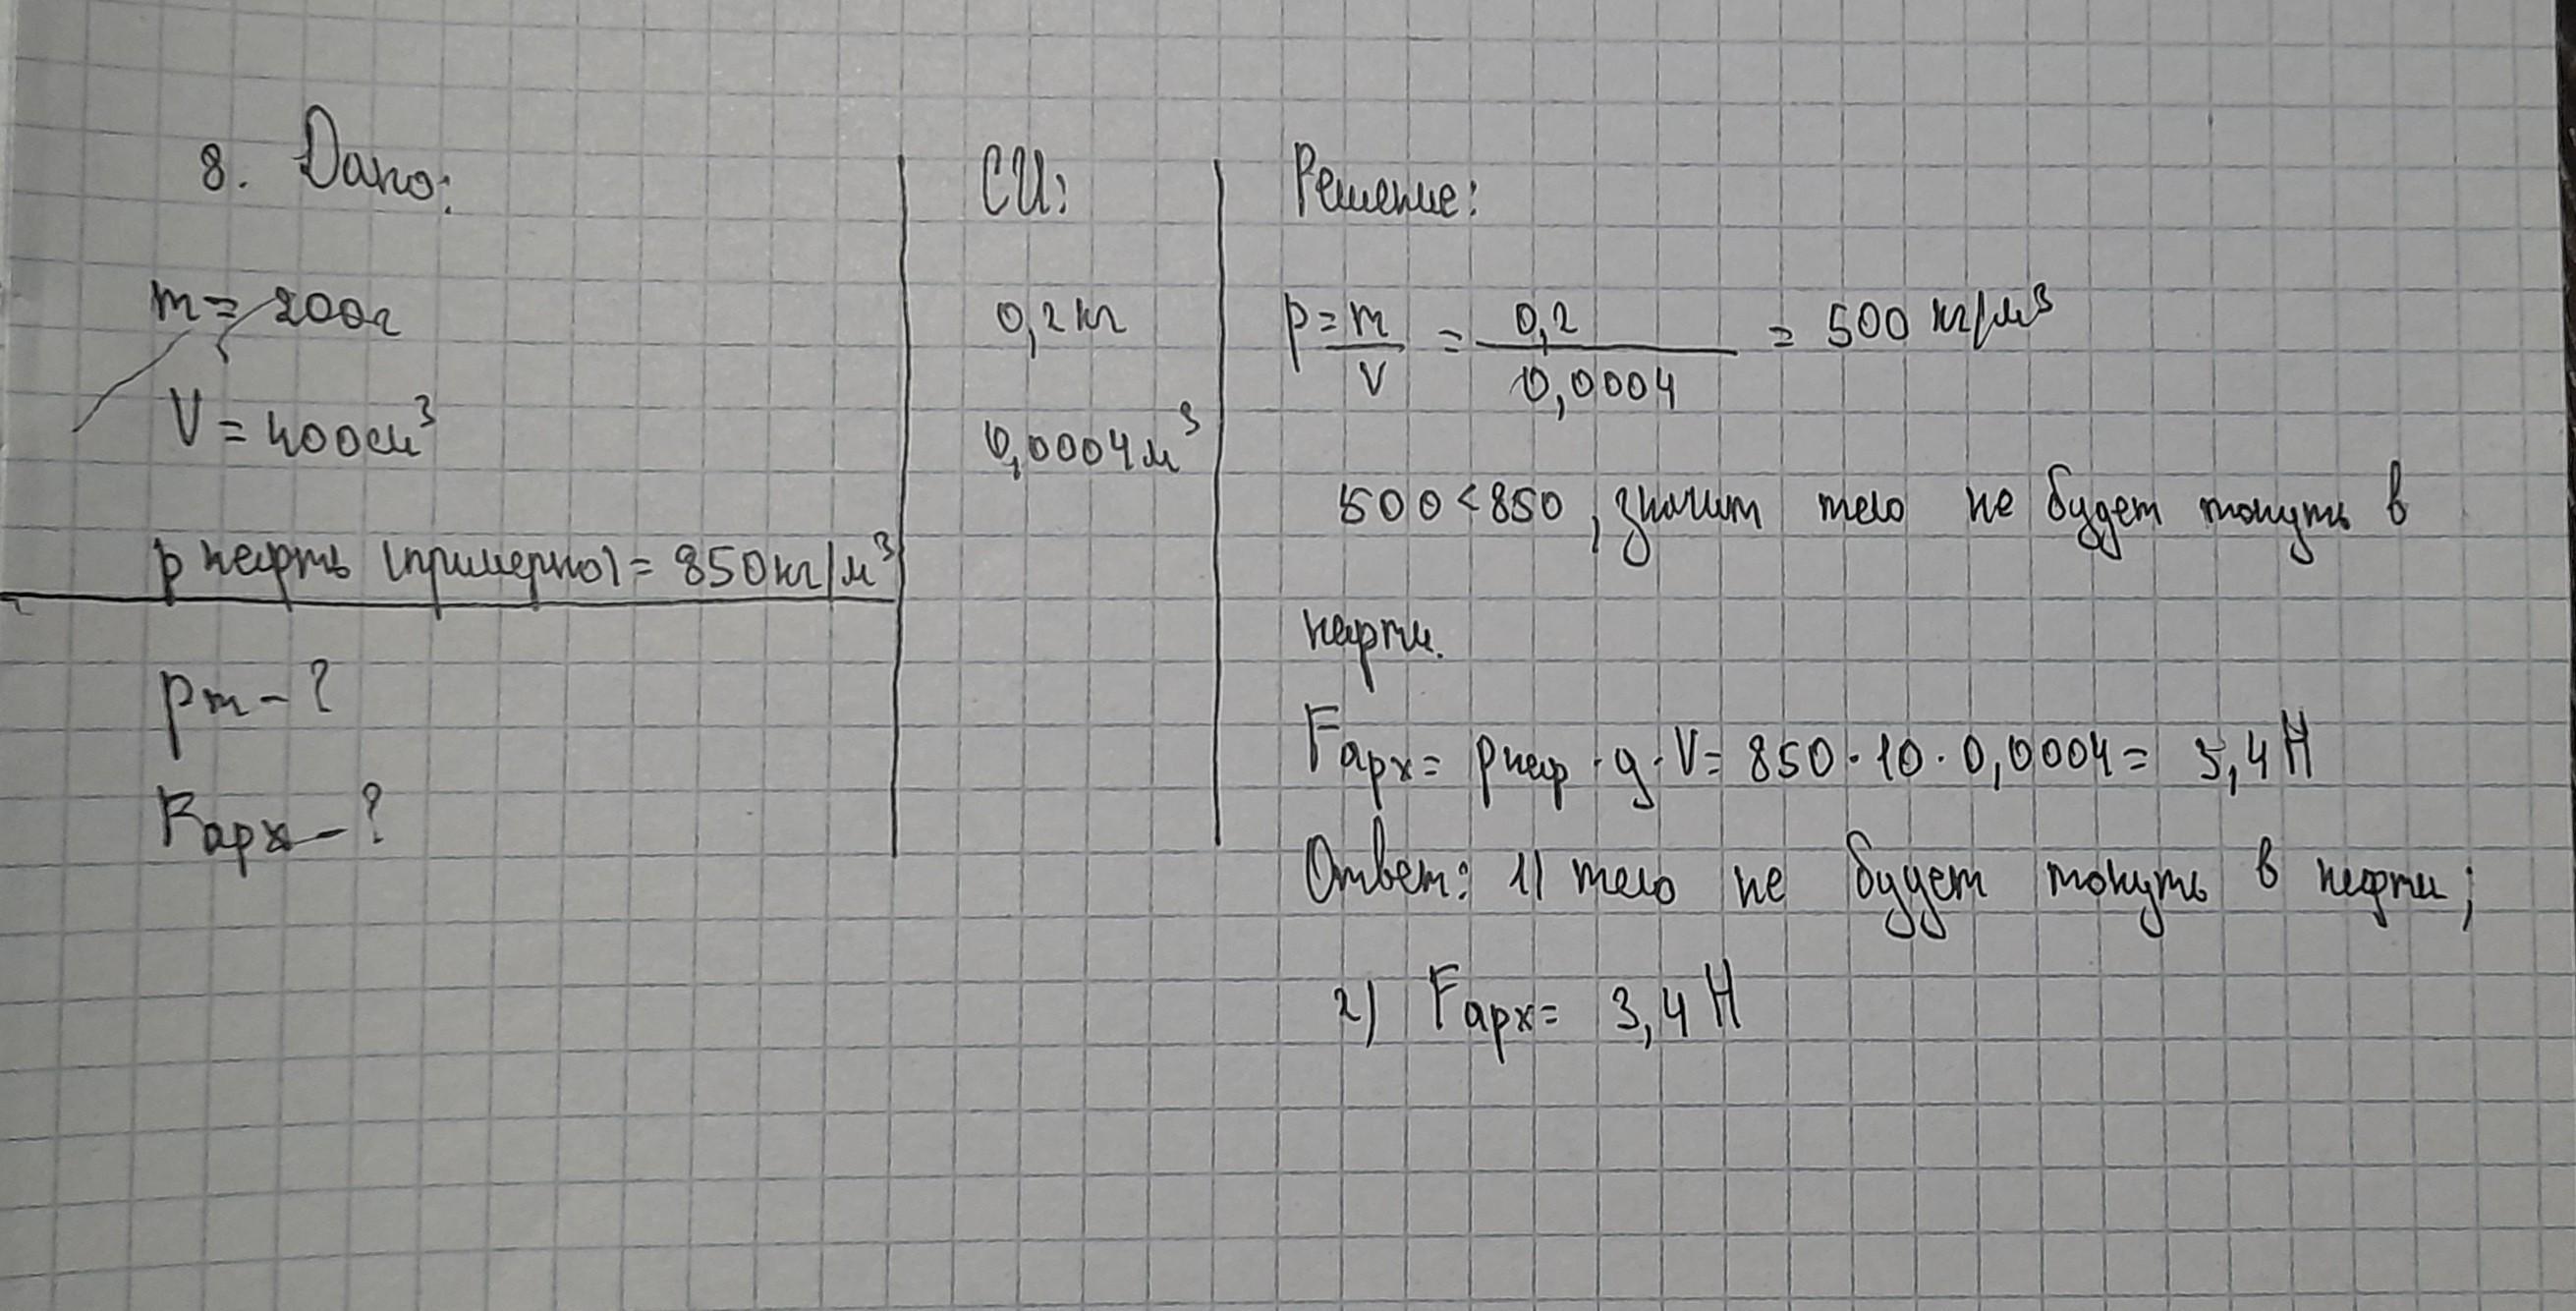 8. Дано:
m = 200г
V = 400см³
p нефть (примерно) = 850кг/м³
pт - ?
Fарх - ?
СИ:
0,2 кг
0,0004м³
Решение:
p = m/V = 0,2/0,0004 = 500 кг/м³
500 < 850, значит тело не будет тонуть в
нефти.
Fарх = pнеф · g · V = 850 · 10 · 0,0004 = 3,4 Н
Ответ: 1) тело не будет тонуть в нефти;
2) Fарх = 3,4 Н